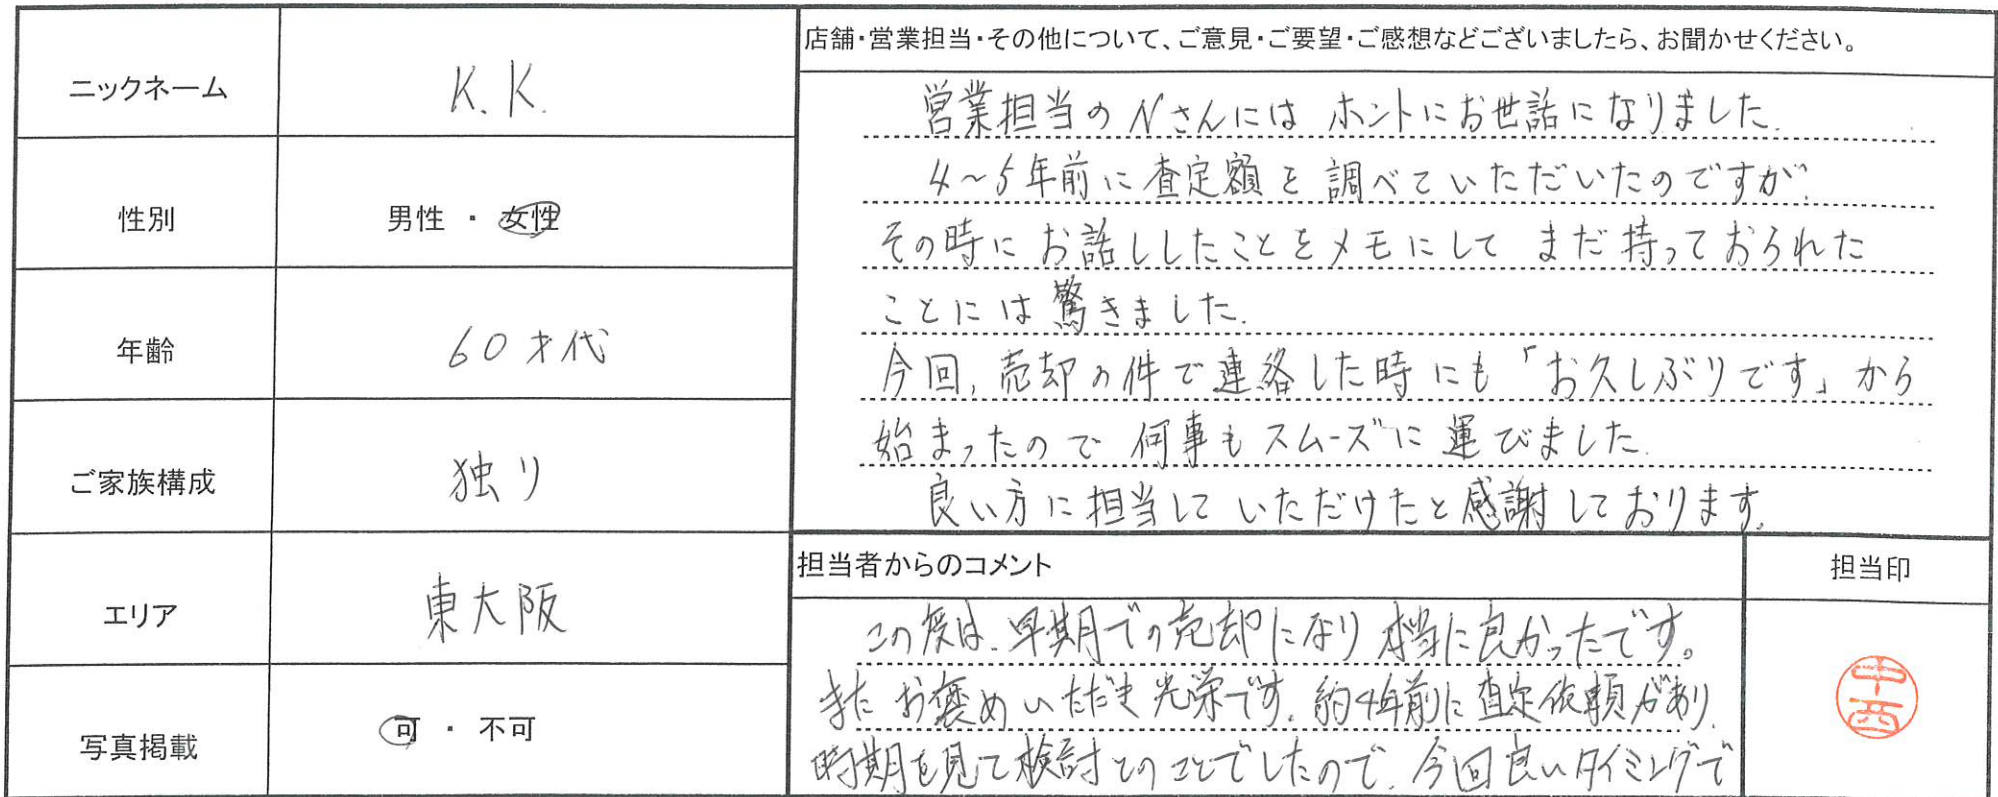 ニックネーム
K.K.
性別
男性 ・ 女性
年齢
60才代
ご家族構成
独り
エリア
東大阪
写真掲載
可 ・ 不可
店舗・営業担当・その他について、ご意見・ご要望・ご感想などございましたら、お聞かせください。
営業担当のNさんには ホントにお世話になりました.
4〜5年前に査定額を調べていただいたのですが、
その時にお話ししたことをメモにして まだ持っておられた
ことには驚きました.
今回,売却の件で連絡した時にも「お久しぶりです」から
始まったので 何事もスムーズに運びました.
良い方に担当していただけたと感謝しております。
担当者からのコメント
この度は、早期での売却になり 本当に良かったです。
また お褒めいただき光栄です。約4年前に査定依頼があり、
時期を見て検討とのことでしたので、今回良いタイミングで
担当印
中西